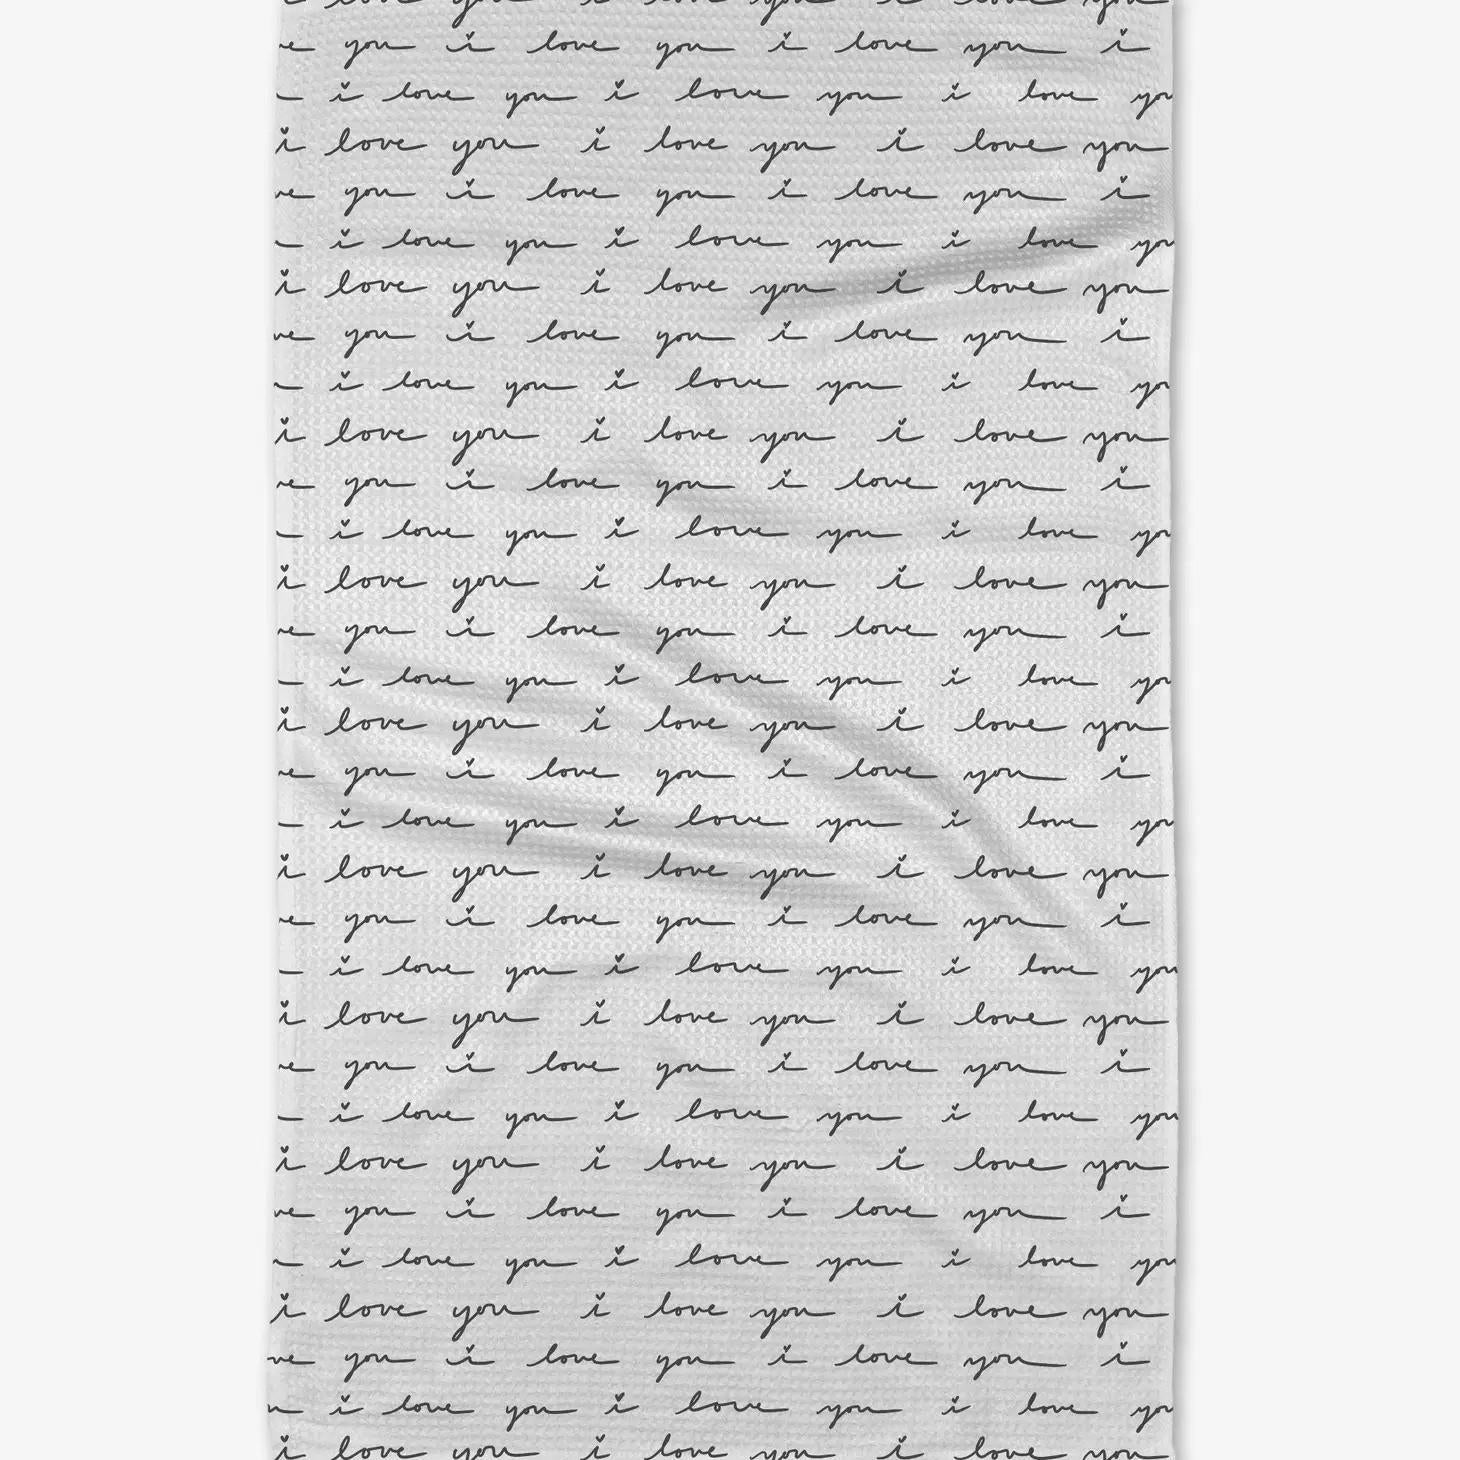 i love you i love you i love you
you i love you i love you i
i love you i love you i love you
i love you i love you i love you
you i love you i love you i
i love you i love you i love you
i love you i love you i love you
you i love you i love you i
i love you i love you i love yo
i love you i love you i love you
you i love you i love you i
i love you i love you i love yo
i love you i love you i love you
you i love you i love you i
i love you i love you i love yo
i love you i love you i love you
you i love you i love you i
i love you i love you i love yo
i love you i love you i love you
you i love you i love you i
i love you i love you i love you
i love you i love you i love you
you i love you i love you i
i love you i love you i love you
i love you i love you i love you
you i love you i love you i
i love you i love you i love you
i love you i love you i love you
you i love you i love you i
i love you i love you i love yo
i love you i love you i love you